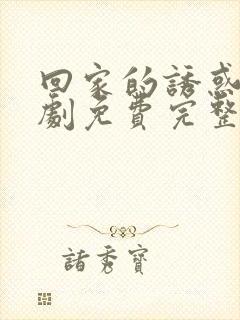 回家的誘惑
劇免費完整
諸秀寶